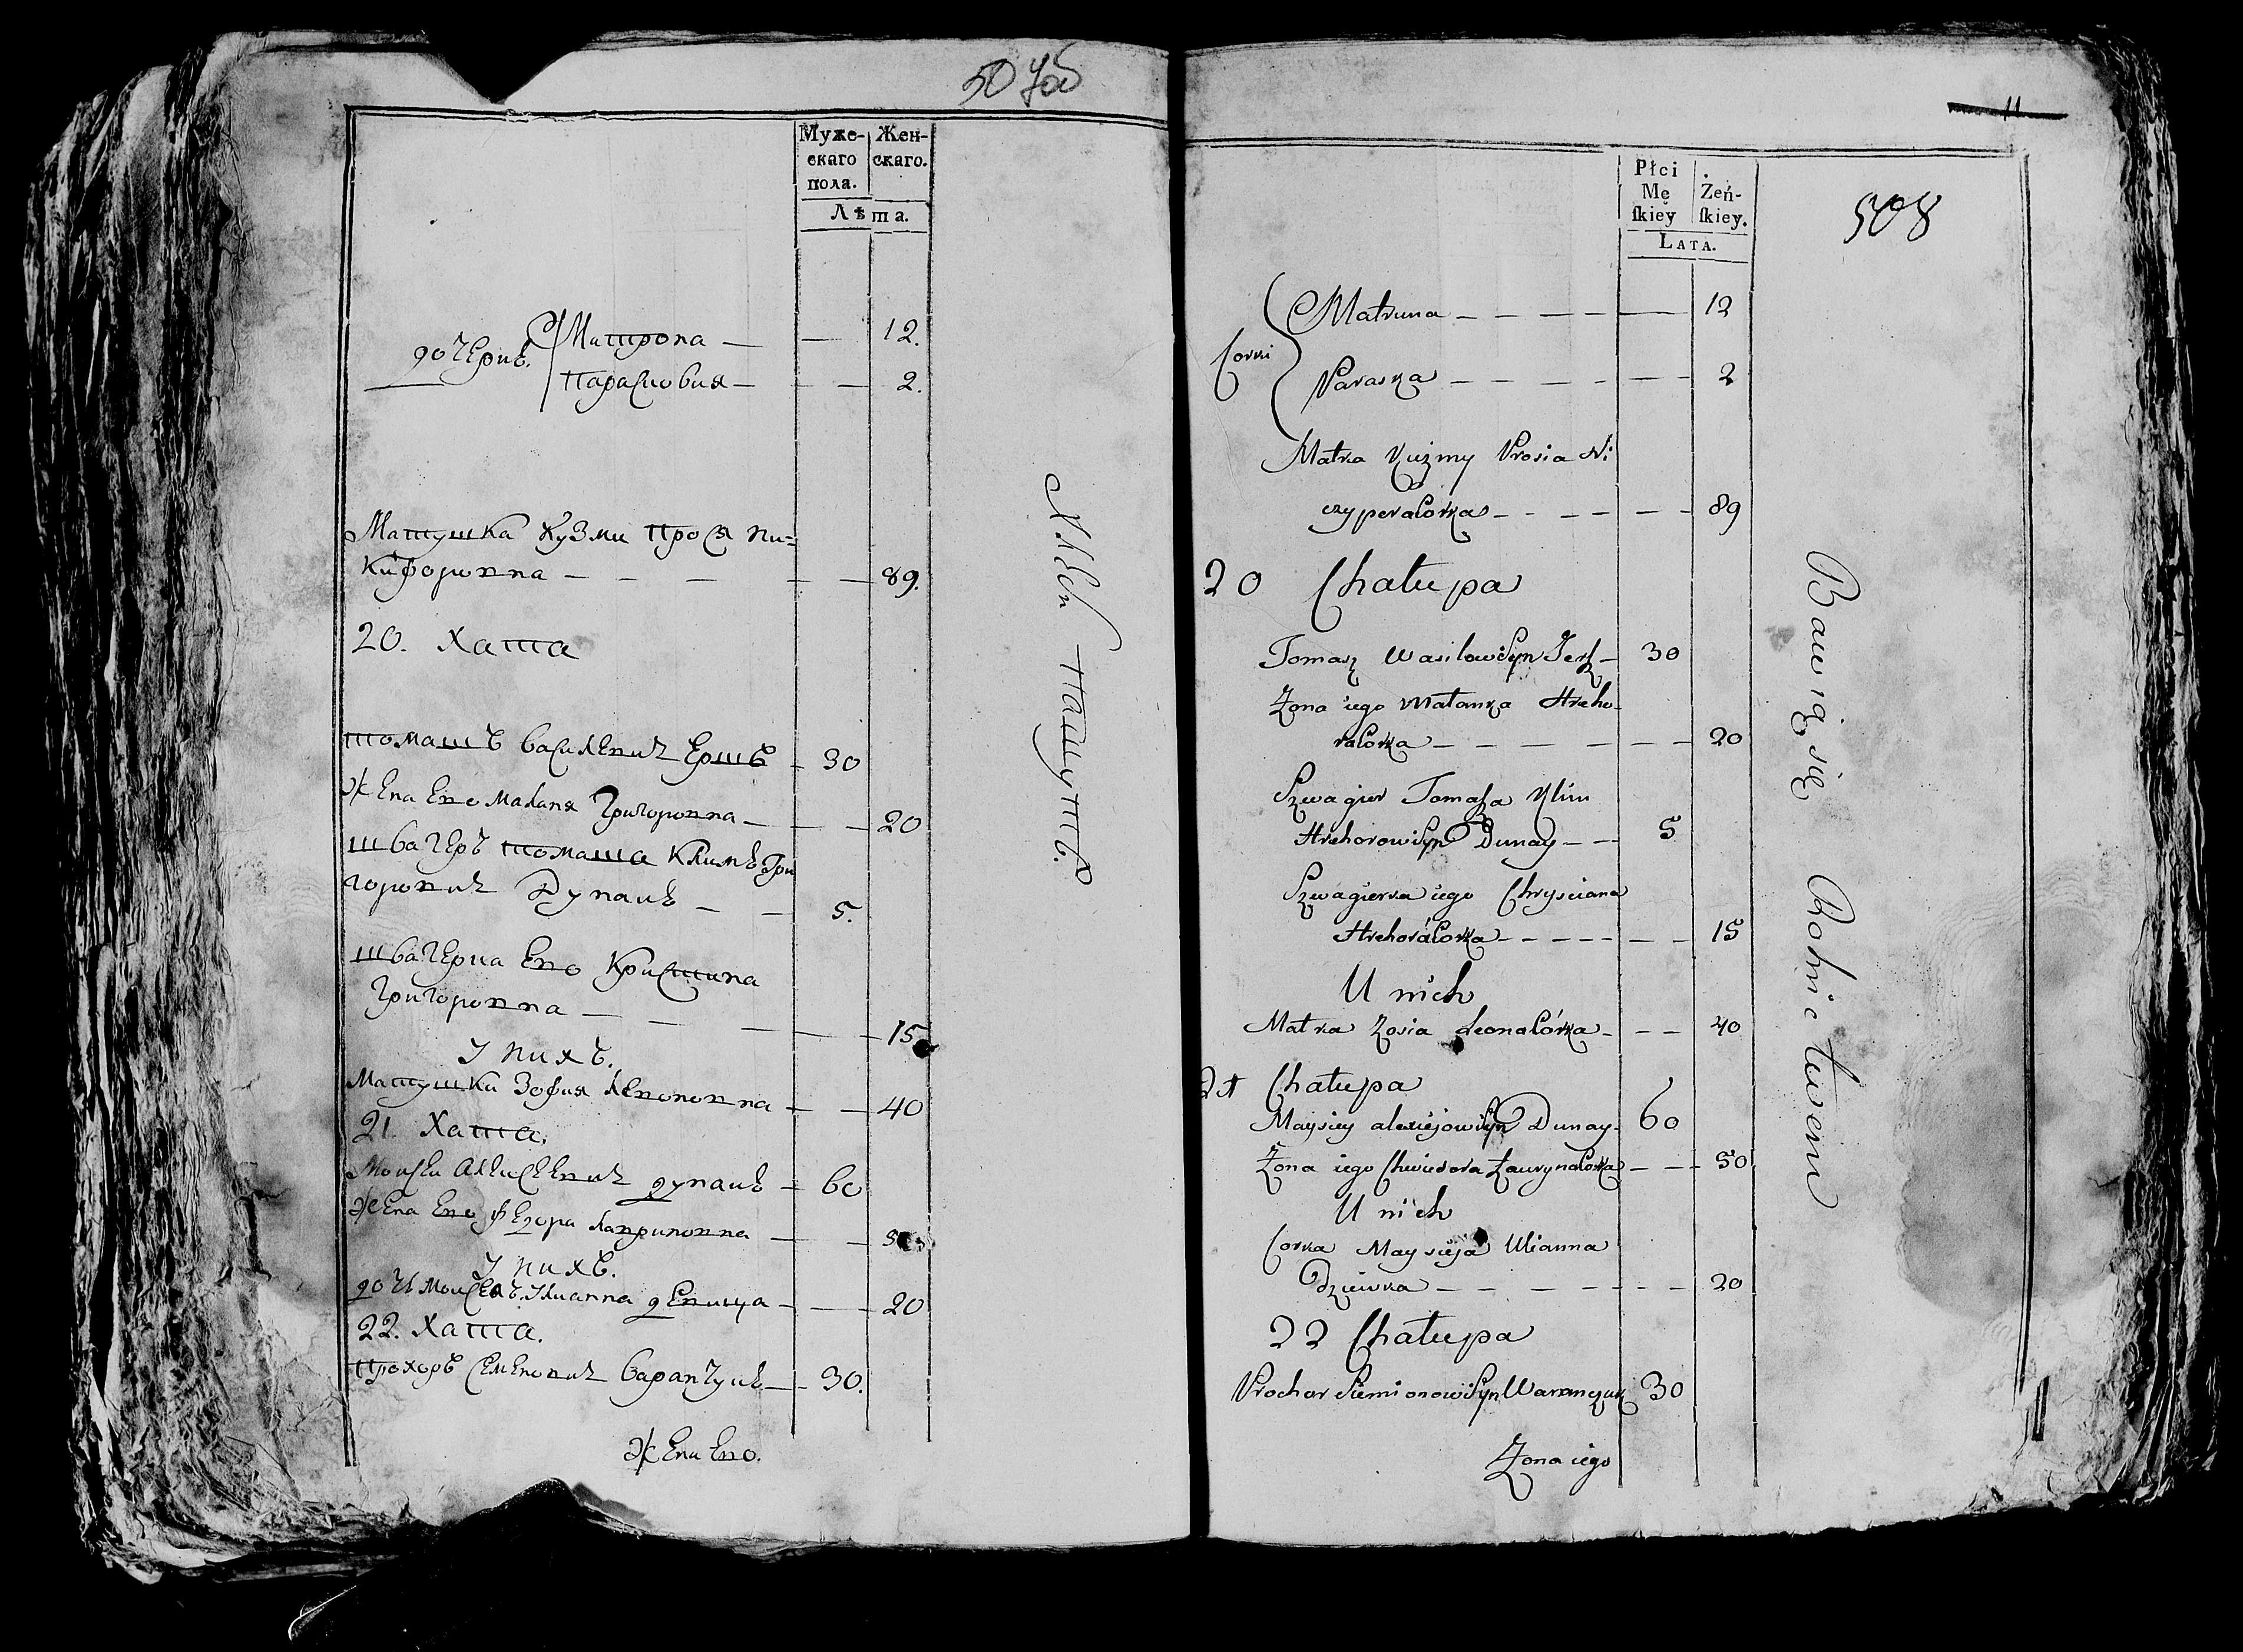 507об
Муже-
скаго
пола.
Жен-
скаго.
Лѣта.
дочерив. Матрона — — 12.
Парасковия — — — 2.
Матушка Кузми Прося Ни=
кифоровна — — — — — 89.
20. Хата
Томашъ Василевич Ершъ — 30
Жена ево Маланя Григоровна — — — 20
Швагеръ Томаша Климъ Гри
горович Дунаив — — 5.
Швагерка ево Кристина
Григоровна — — — — — 15
У нихъ.
Матушки Зофия Левоновна — — 40
21. Хата.
Моисеи Алексеевич Дунаив — 60
Жена ево Федора Лавриновна — — 50
У нихъ.
дочь Моисея Улианна девица — — 20
22. Хата.
Прохоръ Семенович Варанчукъ — 30.
Жена ево.
пашутъ.
11
508
Płci
Mę
ſkiey
Żeń-
ſkiey.
LATA.
Corki
Matruna — — — — — 12
Paraska — — — — — — 2
Matka Kuźmy Prosia Ni
czyperaCorka — — — — — — 89
20 Chałupa
Tomasz WasilowSyn Jersz — 30
Żona iego Małanka Hreho-
raCorka — — — — — — — 20
Szwagier Tomasza Klim
HrehorowSyn Dunay — — 5
Szwagierka iego Chrysciana
HrehoraCorka — — — — — — — 15
U nich
Matka Zosia LeonaCórka — — — 40
21 Chałupa
Maysiey AlexiejowSyn Dunay — 60
Żona iego Chwiedora ŁaurynaCorka — — 50
U nich
Corka Maysieja Ulianna
Dziewka — — — — — — — 20
22 Chałupa
Prochor SiemionowSyn Waranczuk 30
Żona iego
Bawią się Rolnictwem